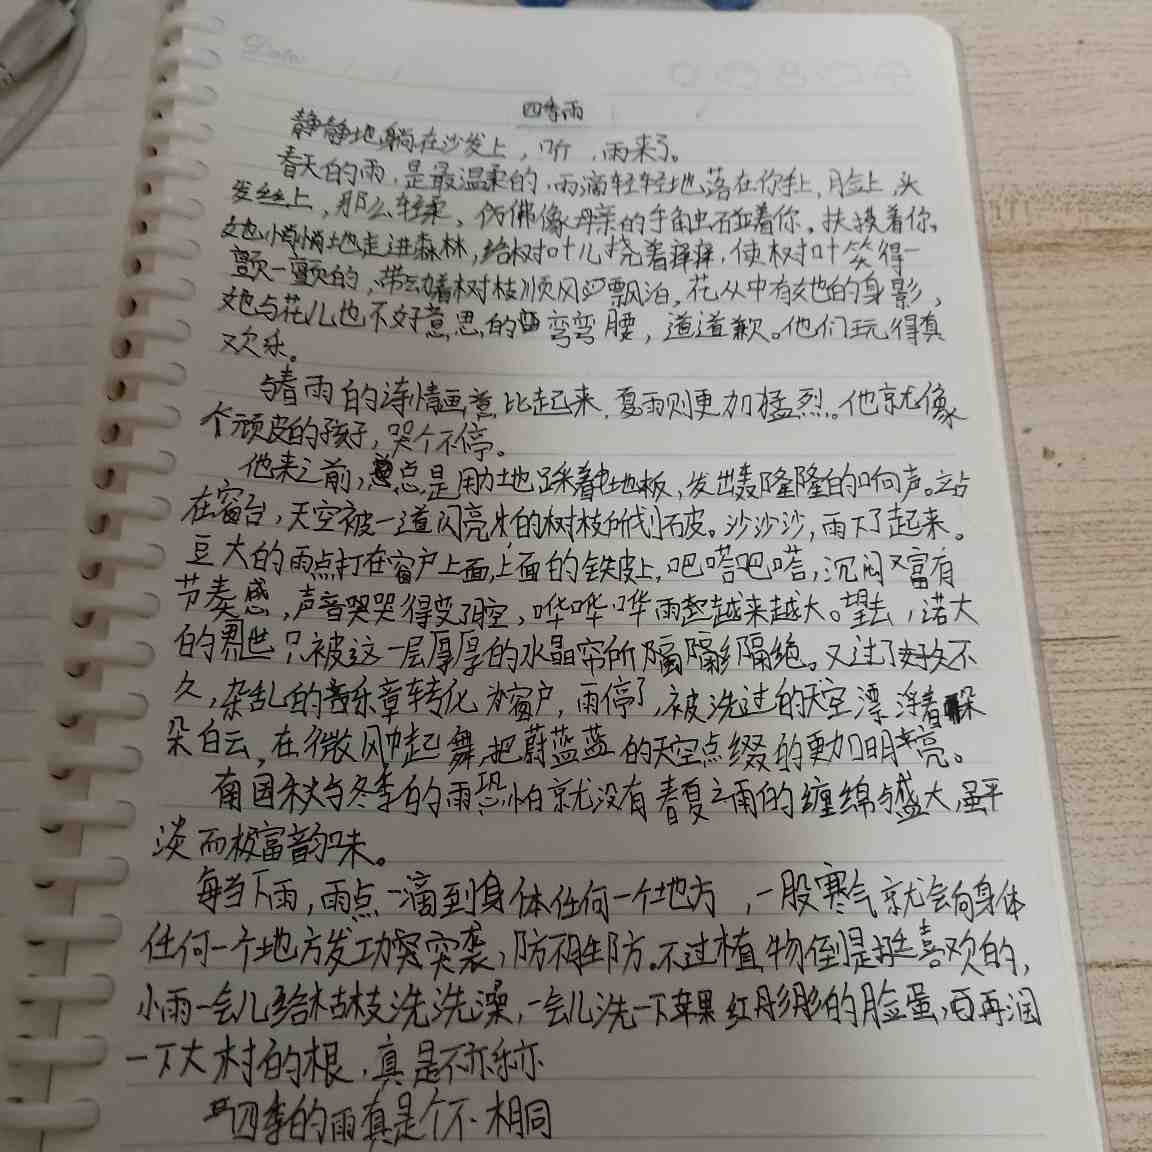 Date:
四季雨
静静地躺在沙发上，听，雨来了。
春天的雨，是最温柔的，雨滴轻轻地落在你手上，脸上，头
发丝上，那么轻柔，仿佛像母亲的手触碰着你，扶摸着你。
她悄悄地走进森林，给树叶儿挠着痒痒，使树叶笑得一
颤一颤的，带动着树枝顺风飘泊，花丛中有她的身影，
她与花儿也不好意思的弯弯腰，道道歉。他们玩得真
欢乐。
与春雨的诗情画意比起来，夏雨则更加猛烈。他就像
个顽皮的孩子，哭个不停。
他来之前，总是用力地踩着地板，发出轰隆隆的响声。站
在窗台，天空被一道闪亮的树枝所划破。沙沙沙，雨下了起来。
豆大的雨点打在窗户上面，上面的铁皮上，吧嗒吧嗒，沉闷又富有
节奏感，声音哭哭得变了腔，哗哗哗雨越来越大。望去，诺大
的 只被这一层厚厚的水晶帘所隔隔隔绝。又过了好久不
久，杂乱的乐章转化为窗户，雨停了，被洗过的天空漂浮着朵
朵白云，在微风中起舞，把蔚蓝蓝的天空点缀的更加明亮。
南国秋与冬季的雨恐怕就没有春夏之雨的缠绵与盛大，虽平
淡而极富韵味。
每当下雨，雨点一滴到身体任何一个地方，一股寒气就会向身体
任何一个地方发功突突袭，防不胜防。不过植物倒是挺喜欢的，
小雨一会儿给枯枝洗洗澡，一会儿洗一下苹果红彤彤的脸蛋，再润
一下大树的根，真是不亦乐亦
四季的雨真是个不相同